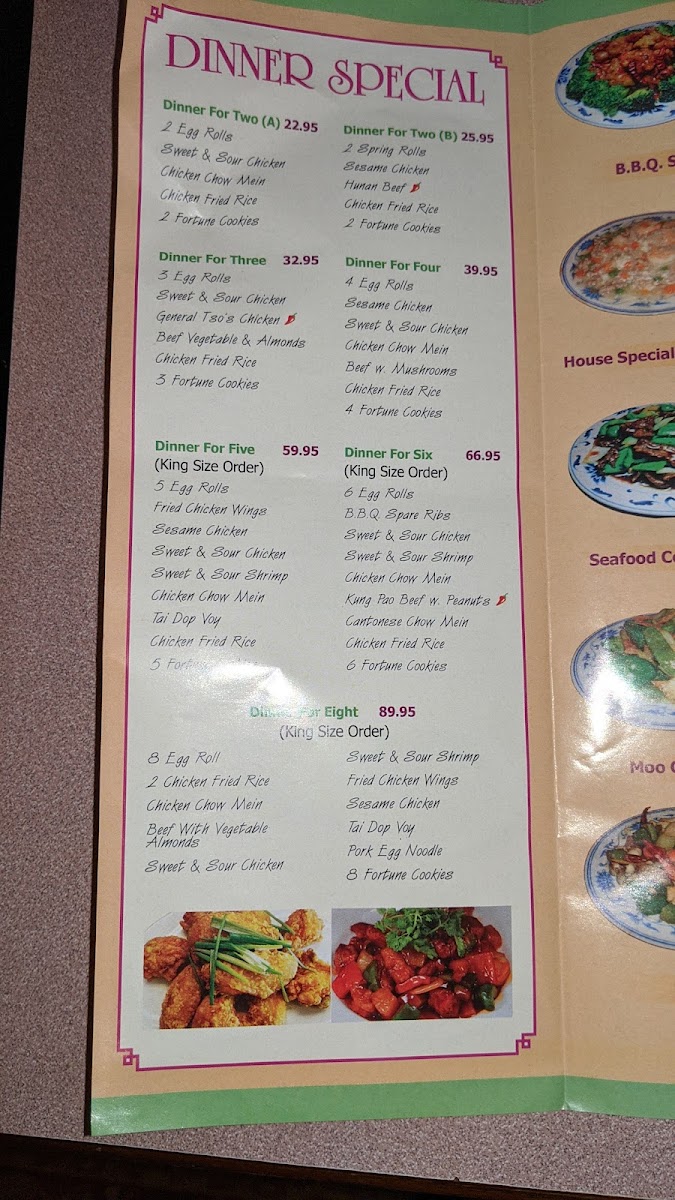 DINNER SPECIAL
Dinner For Two (A) 22.95
2 Egg Rolls
Sweet & Sour Chicken
Chicken Chow Mein
Chicken Fried Rice
2 Fortune Cookies
Dinner For Two (B) 25.95
2 Spring Rolls
Sesame Chicken
Hunan Beef
Chicken Fried Rice
2 Fortune Cookies
Dinner For Three 32.95
3 Egg Rolls
Sweet & Sour Chicken
General Tso's Chicken
Beef Vegetable & Almonds
Chicken Fried Rice
3 Fortune Cookies
Dinner For Four 39.95
4 Egg Rolls
Sesame Chicken
Sweet & Sour Chicken
Chicken Chow Mein
Beef w. Mushrooms
Chicken Fried Rice
4 Fortune Cookies
Dinner For Five 59.95
(King Size Order)
5 Egg Rolls
Fried Chicken Wings
Sesame Chicken
Sweet & Sour Chicken
Sweet & Sour Shrimp
Chicken Chow Mein
Tai Dop Voy
Chicken Fried Rice
5
Dinner For Six 66.95
(King Size Order)
6 Egg Rolls
B.B.Q. Spare Ribs
Sweet & Sour Chicken
Sweet & Sour Shrimp
Chicken Chow Mein
Kung Pao Beef w. Peanuts
Cantonese Chow Mein
Chicken Fried Rice
6 Fortune Cookies
Dinner For Eight 89.95
(King Size Order)
8 Egg Roll
2 Chicken Fried Rice
Chicken Chow Mein
Beef With Vegetable
Almonds
Sweet & Sour Chicken
Sweet & Sour Shrimp
Fried Chicken Wings
Sesame Chicken
Tai Dop Voy
Pork Egg Noodle
8 Fortune Cookies
B.B.Q. S
House Special
Seafood Co
Moo